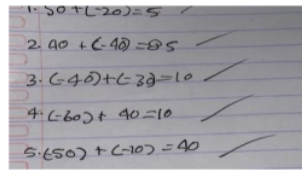 1. 50 + (-20) = 5
2. 40 + (-40) = 85
3. (-40) + (-30) = 10
4. (-60) + 40 = 10
5. (50) + (-10) = 40